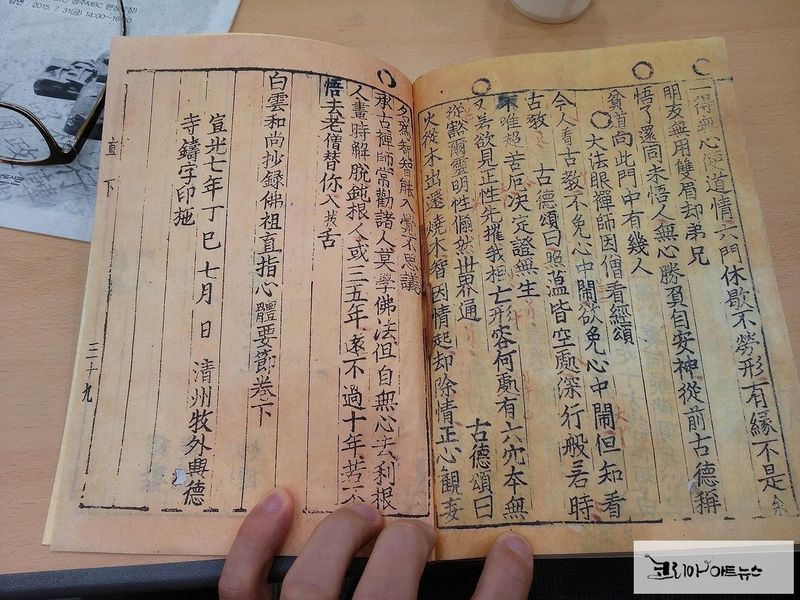 2015. 7. 31(금) 14:00~16:
一得無心便道情六門休歇不勞形有緣不是余
朋友無用雙眉却弟兄
悟了還同未悟人無心勝負自安神從前古德稱
貧道向此門中有幾人
○大法眼禪師因僧看經頌
今人看古敎不免心中鬧欲免心中鬧但知看
古敎 古德頌曰照蘊皆空處深行般若時
不唯超苦厄决定證無生
又若欲見正性先摧我相亡形容何處有六穴本無
從黙爾靈明性翛然世界通 古德頌曰
火從木出還燒木智因情起却除情正心觀妄
爲智智 入 不思議
承古禪師常勸諸人莫學佛法但自無心去利根
人晝時解脫鈍根人或三五年遠不過十年若不
悟去老僧替你入拔舌
白雲和尚抄録佛祖直指心體要節卷下
宣光七年丁巳七月 日 清州牧外興德
寺鑄字印施
直下 三十九
코리아아트뉴스